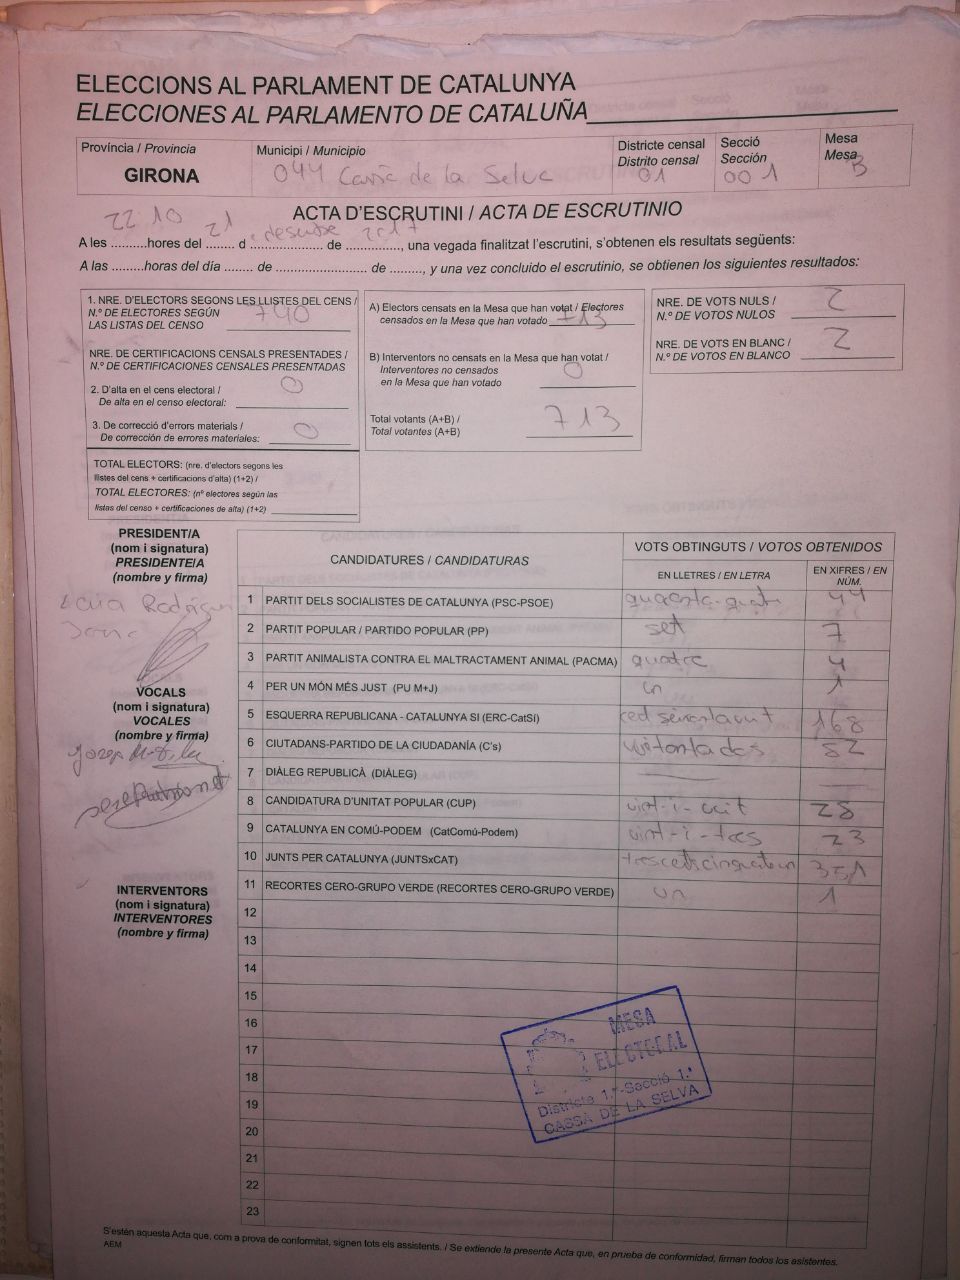 ELECCIONS AL PARLAMENT DE CATALUNYA
ELECCIONES AL PARLAMENTO DE CATALUÑA
Província / Provincia
GIRONA
Municipi / Municipio
044 Cassà de la Selva
Districte censal
Distrito censal
01
Secció
Sección
001
Mesa
Mesa
B
ACTA D'ESCRUTINI / ACTA DE ESCRUTINIO
22 10 21 desembre 2017
A les ..........hores del ........ d .................... de ..............., una vegada finalitzat l'escrutini, s'obtenen els resultats següents:
A las .........horas del día ........ de ......................... de ........., y una vez concluido el escrutinio, se obtienen los siguientes resultados:
1. NRE. D'ELECTORS SEGONS LES LLISTES DEL CENS /
N.º DE ELECTORES SEGÚN
LAS LISTAS DEL CENSO 740
NRE. DE CERTIFICACIONS CENSALS PRESENTADES /
N.º DE CERTIFICACIONES CENSALES PRESENTADAS
2. D'alta en el cens electoral / 0
De alta en el censo electoral:
3. De correcció d'errors materials / 0
De corrección de errores materiales:
TOTAL ELECTORS: (nre. d'electors segons les
llistes del cens + certificacions d'alta) (1+2) /
TOTAL ELECTORES: (nº electores según las
listas del censo + certificaciones de alta) (1+2)
A) Electors censats en la Mesa que han votat / Electores
censados en la Mesa que han votado 713
B) Interventors no censats en la Mesa que han votat /
Interventores no censados 0
en la Mesa que han votado
Total votants (A+B) / 713
Total votantes (A+B)
NRE. DE VOTS NULS / 2
N.º DE VOTOS NULOS
NRE. DE VOTS EN BLANC / 2
N.º DE VOTOS EN BLANCO
PRESIDENT/A
(nom i signatura)
PRESIDENTE/A
(nombre y firma)
VOCALS
(nom i signatura)
VOCALES
(nombre y firma)
INTERVENTORS
(nom i signatura)
INTERVENTORES
(nombre y firma)
CANDIDATURES / CANDIDATURAS
VOTS OBTINGUTS / VOTOS OBTENIDOS
EN LLETRES / EN LETRA
EN XIFRES / EN NÚM.
1 PARTIT DELS SOCIALISTES DE CATALUNYA (PSC-PSOE) 44
2 PARTIT POPULAR / PARTIDO POPULAR (PP) set 7
3 PARTIT ANIMALISTA CONTRA EL MALTRACTAMENT ANIMAL (PACMA) quatre 4
4 PER UN MÓN MÉS JUST (PU M+J) un 1
5 ESQUERRA REPUBLICANA - CATALUNYA SI (ERC-CatSí) 168
6 CIUTADANS-PARTIDO DE LA CIUDADANÍA (C's) 82
7 DIÀLEG REPUBLICÀ (DIÀLEG)
8 CANDIDATURA D'UNITAT POPULAR (CUP) vint-i-vuit 28
9 CATALUNYA EN COMÚ-PODEM (CatComú-Podem) vint-i-tres 23
10 JUNTS PER CATALUNYA (JUNTSxCAT) 351
11 RECORTES CERO-GRUPO VERDE (RECORTES CERO-GRUPO VERDE) un 1
12
13
14
15
16
17
18
19
20
21
22
23
MESA
ELECTORAL
Districte 1.r-Secció 1.ª
CASSÀ DE LA SELVA
S'estén aquesta Acta que, com a prova de conformitat, signen tots els assistents. / Se extiende la presente Acta que, en prueba de conformidad, firman todos los asistentes.
AEM